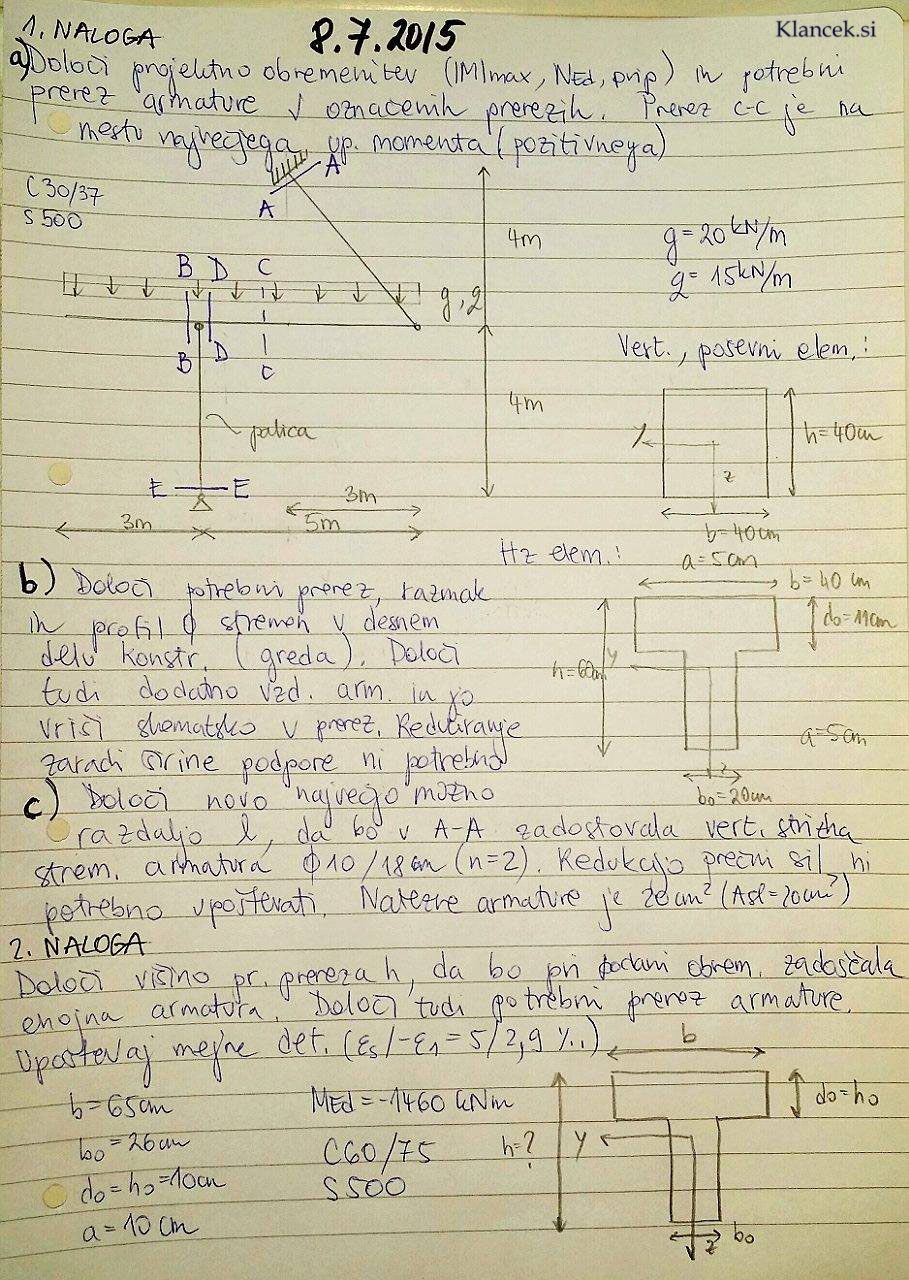 1. NALOGA
8.7.2015
Klancek.si
a) Določi projektno obremenitev (|M|max, NEd, prip) in potrebni
prerez armature v označenih prerezih. Prerez c-c je na
mestu največjega up. momenta (pozitivnega)
C 30/37
S 500
A
A
4m
g = 20 kN/m
g = 15 kN/m
B D C
g, g
B D C
Vert., poševni elem.:
4m
palica
Y
z
h = 40cm
E E
3m
3m
5m
b = 40cm
Hz elem.:
a = 5cm
b) Določi potrebni prerez, razmak
in profil ϕ stremen v desnem
delu konstr. (greda). Določi
tudi dodatno vzd. arm. in jo
vriši shematsko v prerez. Reduciranje
zaradi širine podpore ni potrebno
b = 40 cm
do = 11cm
h = 60cm
Y
z
a = 5cm
bo = 20cm
c) Določi novo največjo možno
razdaljo l, da bo v A-A zadostovala vert. strižna
strem. armatura ϕ10/18cm (n=2). Redukcijo prečni sil ni
potrebno upoštevati. Natezne armature je 20cm² (Asl=20cm²)
2. NALOGA
Določi višino pr. prereza h, da bo pri podani obrem. zadoščala
enojna armatura. Določi tudi potrebni prerez armature.
Upoštevaj mejne def. (εs/-ε1 = 5/2,9 ‰)
b
b = 65cm
MEd = -1460 kNm
do = ho
bo = 26cm
C60/75
h = ?
Y
do = ho = 10cm
S500
a = 10 cm
bo
z